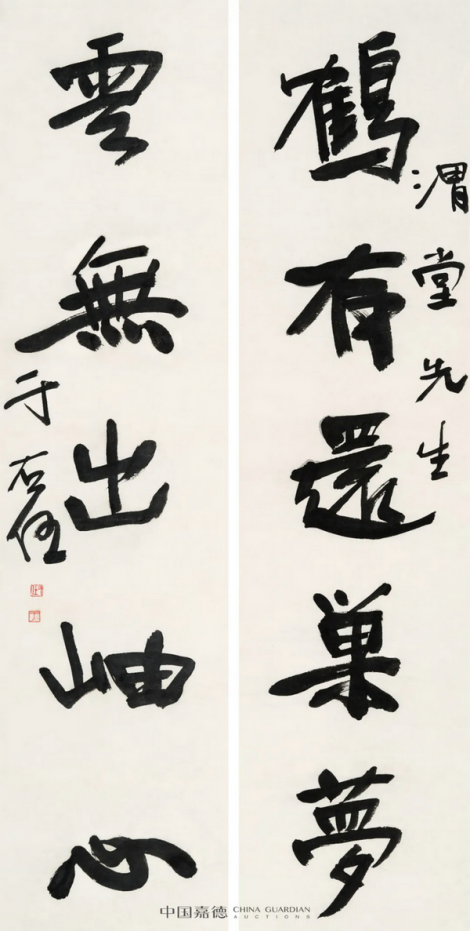 鶴有還巢夢
渭堂先生
雲無出岫心
于右任
中国嘉德 CHINA GUARDIAN
AUCTIONS